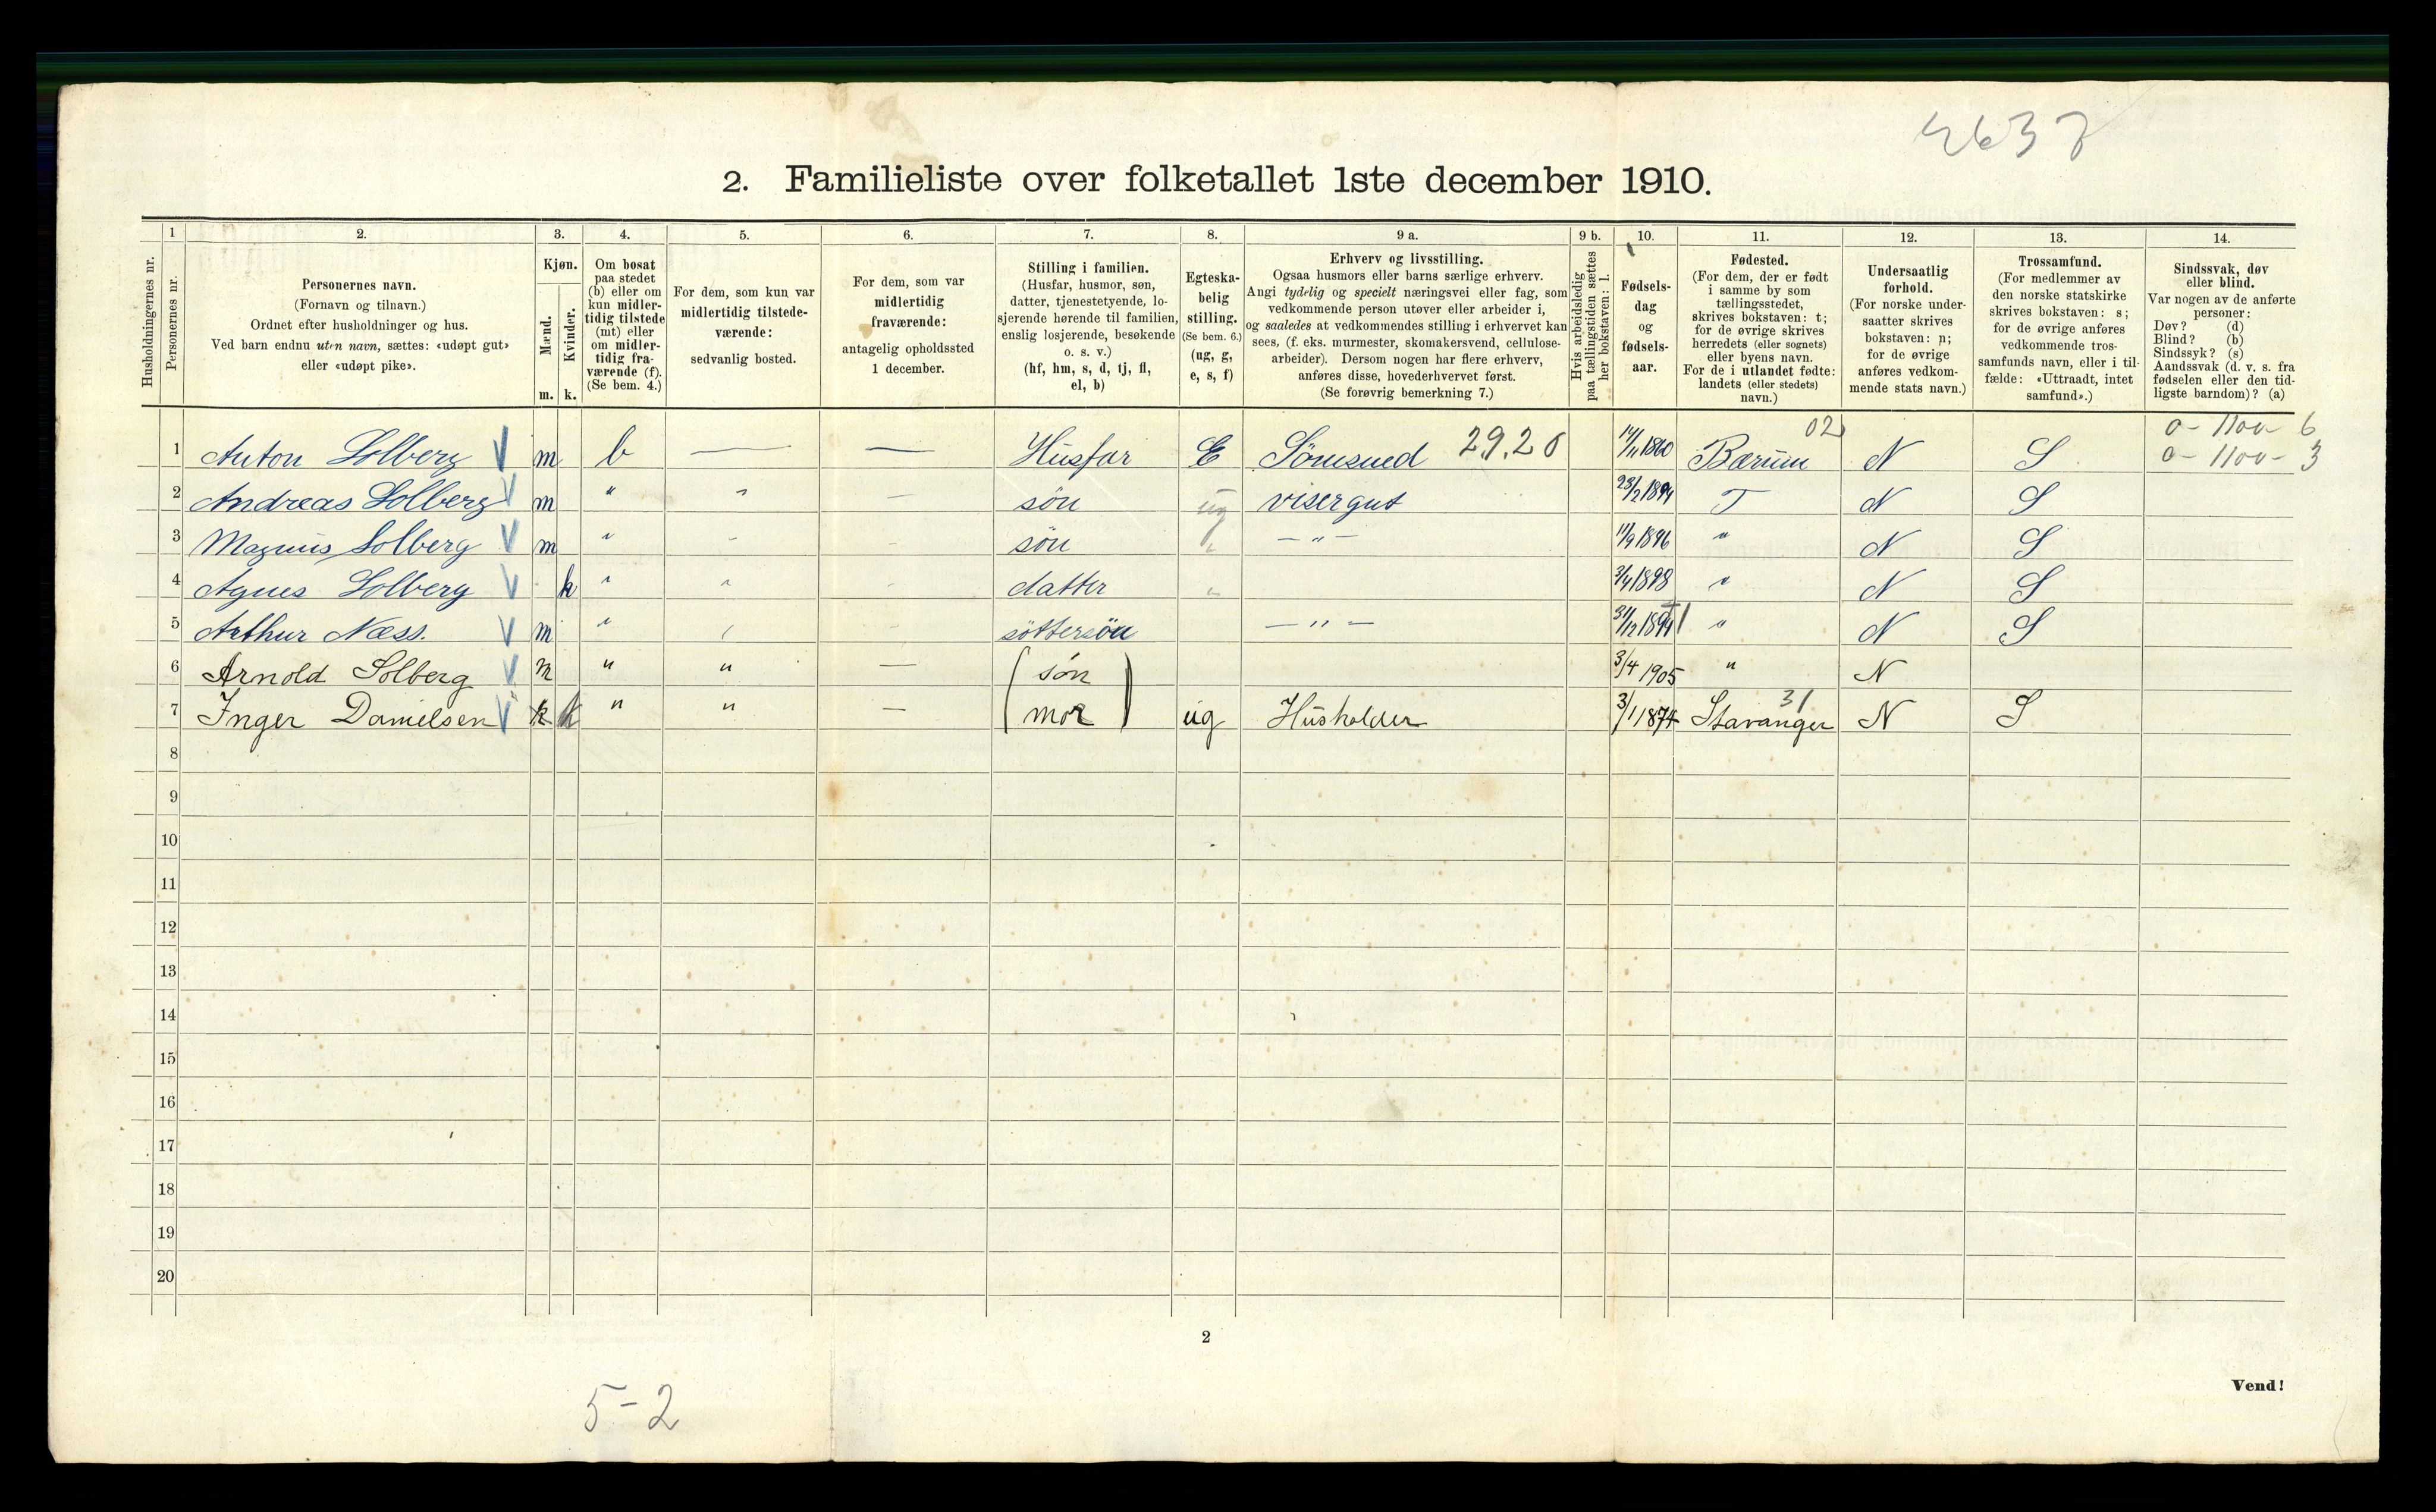 2637
2. Familieliste over folketallet 1ste december 1910.
Husholdningernes nr.
1 Personernes nr.
2. Personernes navn. (Fornavn og tilnavn.) Ordnet efter husholdninger og hus. Ved barn endnu uten navn, sættes: «udøpt gut» eller «udøpt pike».
3. Kjøn. Mænd. m. Kvinder. k.
4. Om bosat paa stedet (b) eller om kun midler-tidig tilstede (mt) eller om midler-tidig fra-værende (f). (Se bem. 4.)
5. For dem, som kun var midlertidig tilstede-værende: sedvanlig bosted.
6. For dem, som var midlertidig fraværende: antagelig opholdssted 1 december.
7. Stilling i familien. (Husfar, husmor, søn, datter, tjenestetyende, lo-sjerende hørende til familien, enslig losjerende, besøkende o. s. v.) (hf, hm, s, d, tj, fl, el, b)
8. Egteska-belig stilling. (Se bem. 6.) (ug, g, e, s, f)
9 a. Erhverv og livsstilling. Ogsaa husmors eller barns særlige erhverv. Angi tydelig og specielt næringsvei eller fag, som vedkommende person utøver eller arbeider i, og saaledes at vedkommendes stilling i erhvervet kan sees, (f. eks. murmester, skomakersvend, cellulose-arbeider). Dersom nogen har flere erhverv, anføres disse, hovederhvervet først. (Se forøvrig bemerkning 7.)
9 b. Hvis arbeidsledig paa tællingstiden sættes her bokstaven: l.
10. Fødsels-dag og fødsels-aar.
11. Fødested. (For dem, der er født i samme by som tællingsstedet, skrives bokstaven: t; for de øvrige skrives herredets (eller sognets) eller byens navn. For de i utlandet fødte: landets (eller stedets) navn.)
12. Undersaatlig forhold. (For norske under-saatter skrives bokstaven: n; for de øvrige anføres vedkom-mende stats navn.)
13. Trossamfund. (For medlemmer av den norske statskirke skrives bokstaven: s; for de øvrige anføres vedkommende tros-samfunds navn, eller i til-fælde: «Uttraadt, intet samfund».)
14. Sindssvak, døv eller blind. Var nogen av de anførte personer: Døv? (d) Blind? (b) Sindssyk? (s) Aandssvak (d. v. s. fra fødselen eller den tid-ligste barndom)? (a)
1 Anton Solberg m b — — Husfar E Sömsmed 29.20 14/11 1860 Bærum 02 N S 0 - 1100 - 6
0 - 1100 - 3
2 Andreas Solberg m " " — sön ug visergut 23/2 1894 T N S
3 Magnus Solberg m " - - sön " — " — 11/9 1896 " N S
4 Agnes Solberg k " " - datter " 3/4 1898 " N S
5 Arthur Næss. m " söttersön — " — 31/12 1894 " N S
6 Arnold Solberg m " " — (søn 3/4 1905 " N
7 Inger Danielsen k k " " — mor) ug Husholder 3/1 1874 Stavanger 31 N S
8
9
10
11
12
13
14
15
16
17
18
19
20
2
Vend!
5-2